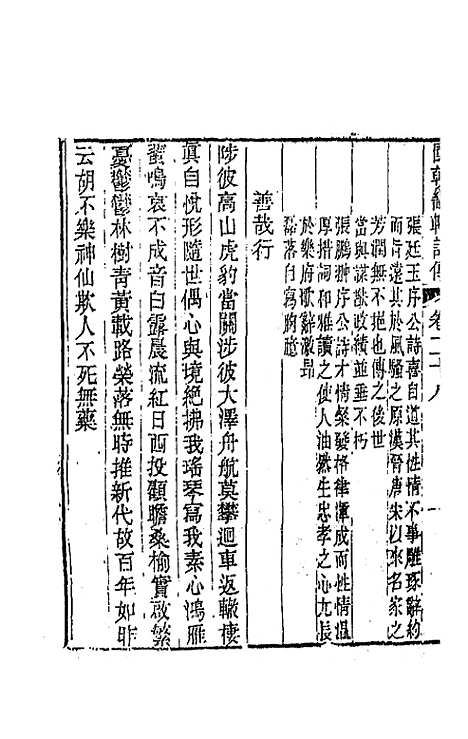 國朝詩傳 卷二十八 一
張廷玉序公詩喜自道其性情不事雕琢辭約
而旨遠其於風騷之原漢晉唐宋以來名家之
芳潤無不挹也傳之後世
當與謀猷政績並垂不朽
張鵬翀序公詩才情粲發格律渾成而性情溫
厚措詞和雅讀之使人油然生忠孝之心尤長
於樂府歌辭激昂
磊落自寫胸臆
善哉行
陟彼高山虎豹當關涉彼大澤舟航莫攀迴車返轍棲
眞自怡形隨世偶心與境絶拂我瑤琴寫我素心鴻雁
蜚鳴哀不成音白露晨流紅日西投顧瞻桑榆實啟繁
憂鬱鬱林樹青黃載路榮落無時推新代故百年如昨
云胡不樂神仙欺人不死無藥